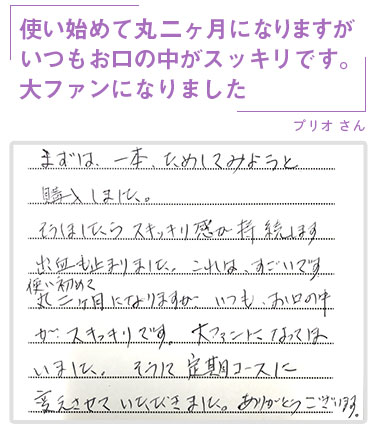 使い始めて丸二ヶ月になりますが
いつもお口の中がスッキリです。
大ファンになりました
プリオ さん
まずは、一本、ためしてみようと
購入しました。
そうしたらスッキリ感が持続します
出血も止まりました。これは、すごいです
使い初めて
丸二ヶ月になりますが いつも、お口の中
が スッキリです。大ファンになってしま
いました。そうそう 定期コースに
変えさせていただきました。ありがとうございます。